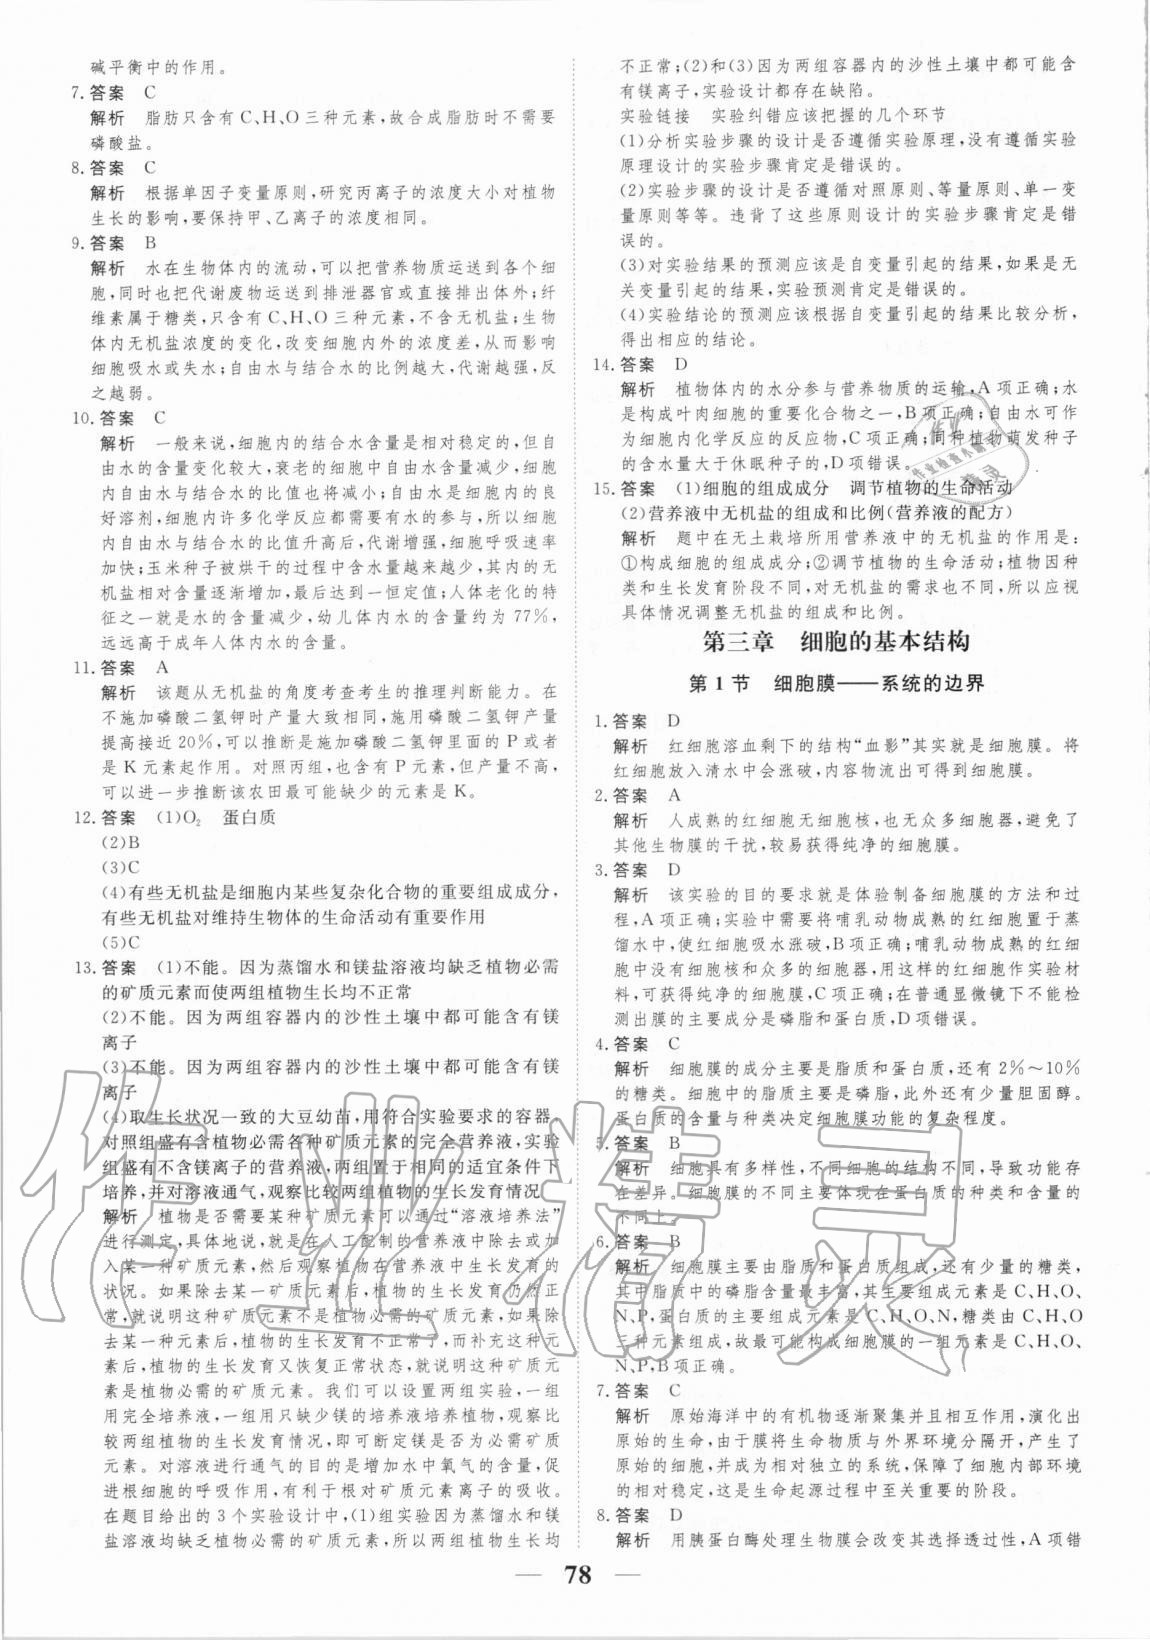 碱平衡中的作用。
7.答案　C
解析　脂肪只含有C、H、O三种元素,故合成脂肪时不需要
磷酸盐。
8.答案　C
解析　根据单因子变量原则,研究丙离子的浓度大小对植物
生长的影响,要保持甲、乙离子的浓度相同。
9.答案　B
解析　水在生物体内的流动,可以把营养物质运送到各个细
胞,同时也把代谢废物运送到排泄器官或直接排出体外;纤
维素属于糖类,只含有C、H、O三种元素,不含无机盐;生物
体内无机盐浓度的变化,改变细胞内外的浓度差,从而影响
细胞吸水或失水;自由水与结合水的比例越大,代谢越强,反
之越弱。
10.答案　C
解析　一般来说,细胞内的结合水含量是相对稳定的,但自
由水的含量变化较大,衰老的细胞中自由水含量减少,细胞
内自由水与结合水的比值也将减小。细胞内自由水是良
好溶剂,细胞内许多化学反应都需要有水的参与,所以细胞
内自由水与结合水的比值升高后,代谢增强,细胞呼吸速率
加快;玉米种子被烘干的过程中含水量越来越少,其内的无
机盐相对含量逐渐增加,最后达到一恒定值;人体老化的特
征之一就是水的含量减少,幼儿体内水的含量约有77%,
远远高于成年人体内水的含量。
11.答案　A
解析　该题从无机盐的角度考查考生的推理判断能力。在
不施加磷酸二氢钾时产量大致相同,施用磷酸二氢钾产量
提高接近20%,可以推断是施加磷酸二氢钾里面的P或者
是K元素起作用。对照丙组,也含有P元素,但产量不高,
可以进一步推断该农田最可能缺少的元素是K。
12.答案　(1)O₂　蛋白质
(2)B
(3)C
(4)有些无机盐是细胞内某些复杂化合物的重要组成成分,
有些无机盐对维持生物体的生命活动有重要作用
(5)C
13.答案　(1)不能。因为蒸馏水和镁盐溶液均缺乏植物必需
的矿质元素而使两组植物生长均不正常
(2)不能。因为两组容器内的沙性土壤中都可能含有镁
离子
(3)不能。因为两组容器内的沙性土壤中都可能含有镁
离子
(4)取生长状况一致的大豆幼苗,用符合实验要求的容器,
对照组盛有含植物必需各种矿质元素的完全营养液,实验
组盛有不含镁离子的营养液,两组植物于相同的适宜条件下
培养,并对溶液通气,观察比较两组植物的生长发育情况
解析　植物是否需要某种矿质元素可以通过“溶液培养法”
进行测定,具体地说,就是在人工配制的营养液中除去或加
入某一种矿质元素,然后观察植物在营养液中生长发育的
状况。如果除去某一矿质元素后,植物的生长发育仍然正
常,就说明这种矿质元素不是植物必需的矿质元素,如果除
去某一种元素后,植物的生长发育不正常了,而补充这种元
素后,植物的生长发育又恢复正常状态,就说明这种矿质元
素是植物必需的矿质元素。我们可以设置两组实验,一组
用完全培养液,一组用只缺少镁的培养液培养植物,观察比
较两组植物的生长发育情况,即可断定镁是否为必需矿质
元素。对溶液进行通气的目的是增加水中氧气的含量,促
进根细胞的呼吸作用,有利于根对矿质元素离子的吸收。
在题目给出的3个实验设计中,(1)组实验因为蒸馏水和镁
盐溶液均缺乏植物必需的矿质元素,所以两组植物生长均
不正常;(2)和(3)因为两组容器内的沙性土壤中都可能含
有镁离子,实验设计都存在缺陷。
实验链接　实验纠错应该把握的几个环节
(1)分析实验步骤的设计是否遵循实验原理,没有遵循实验
原理设计的实验步骤肯定是错误的。
(2)实验步骤的设计是否遵循对照原则、等量原则、单一变
量原则等等。违背了这些原则设计的实验步骤肯定是错
误的。
(3)对实验结果的预测应该是自变量引起的结果,如果是无
关变量引起的结果,实验预测肯定是错误的。
(4)实验结论的预测应该根据自变量引起的结果比较分析,
得出相应的结论。
14.答案　D
解析　植物体内的水分参与营养物质的运输,A项正确;水
是构成叶肉细胞的重要化合物之一,B项正确;自由水可作
为细胞内化学反应的反应物,C项正确;同种植物萌发种子
的含水量大于休眠种子的,D项错误。
15.答案　(1)细胞的组成成分　调节植物的生命活动
(2)营养液中无机盐的组成和比例(营养液的配方)
解析　题中在无土栽培所用营养液中的无机盐的作用是:
①构成细胞的组成成分;②调节植物的生命活动;植物因种
类和生长发育阶段不同,对无机盐的需求也不同,所以应视
具体情况调整无机盐的组成和比例。
第三章　细胞的基本结构
第1节　细胞膜——系统的边界
1.答案　D
解析　红细胞溶血剩下的结构“血影”其实就是细胞膜。将
红细胞放入清水中会涨破,内容物流出可得到细胞膜。
2.答案　A
解析　人成熟的红细胞无细胞核,也无众多细胞器,避免了
其他生物膜的干扰,较易获得纯净的细胞膜。
3.答案　D
解析　该实验的目的要求就是体验制备细胞膜的方法和过
程,A项正确;实验中需要将哺乳动物成熟的红细胞置于蒸
馏水中,使红细胞吸水涨破,B项正确;哺乳动物成熟的红细
胞中没有细胞核和众多的细胞器,用这样的红细胞作实验材
料,可获得纯净的细胞膜,C项正确;在普通显微镜下不能检
测出膜的主要成分是磷脂和蛋白质,D项错误。
4.答案　C
解析　细胞膜的成分主要是脂质和蛋白质,还有2%～10%
的糖类。细胞中的脂质主要是磷脂,此外还有少量胆固醇。
蛋白质的含量与种类决定细胞膜功能的复杂程度。
5.答案　B
解析　细胞具有多样性,不同细胞的结构不同,导致功能存
在差异。细胞膜的不同主要体现在蛋白质的种类和含量的
不同上。
6.答案　B
解析　细胞膜主要由脂质和蛋白质组成,还有少量的糖类,
其中脂质中的磷脂含量最丰富,其主要组成元素是C、H、O、
N、P,蛋白质的主要组成元素是C、H、O、N,糖类由C、H、O
三种元素组成,故最可能构成细胞膜的一组元素是C、H、O、
N、P,B项正确。
7.答案　C
解析　原始海洋中的有机物逐渐聚集并且相互作用,演化出
原始的生命,由于膜将生命物质与外界环境分隔开,产生了
原始的细胞,并成为相对独立的系统,保障了细胞内部环境
的相对稳定,这是生命起源过程中至关重要的阶段。
8.答案　D
解析　用胰蛋白酶处理生物膜会改变其选择透过性,A项错
78
作业精灵